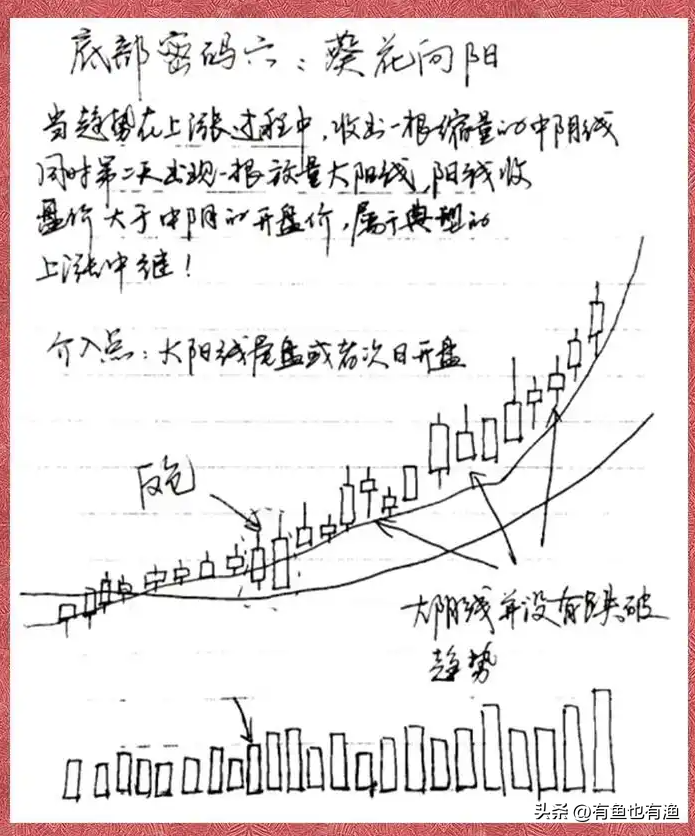 底部密码六：葵花向阳
当趋势在上涨过程中，收出一根缩量的中阴线
同时第二天出现一根放量大阳线，阳线收
盘价大于中阴的开盘价，属于典型的
上涨中继！
介入点：大阳线尾盘或者次日开盘
反包
大阴线并没有跌破
趋势
头条 @有鱼也有渔